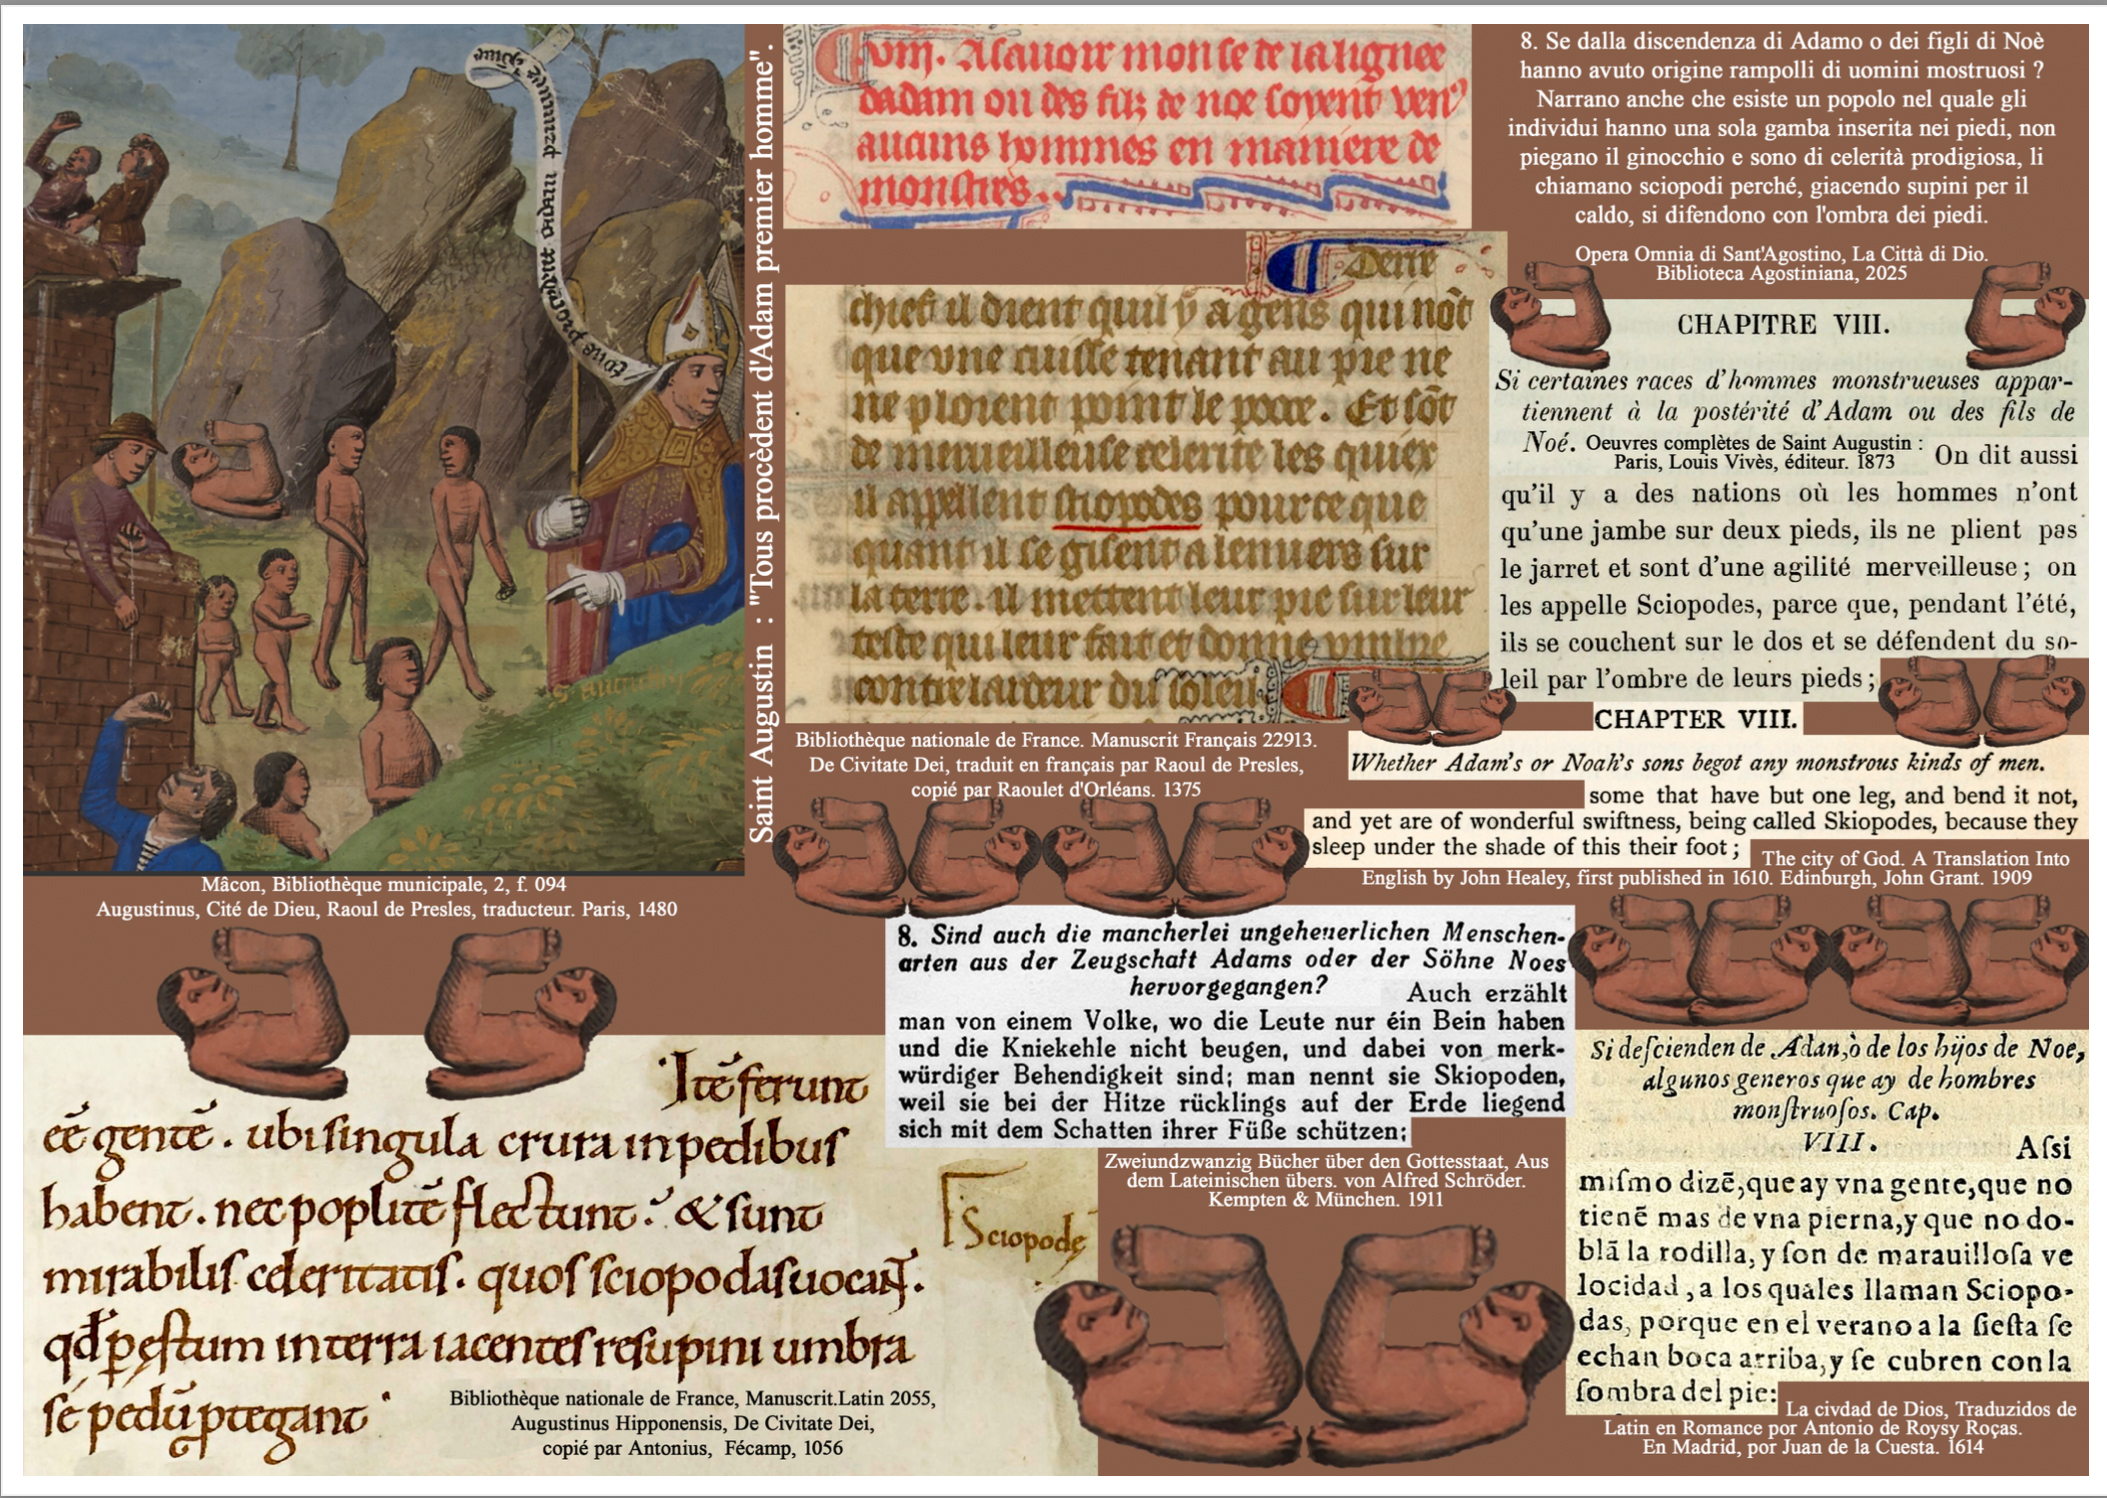 Tous procedent dadam premier homme
Saint Augustin : "Tous procèdent d'Adam premier homme".
Mâcon, Bibliothèque municipale, 2, f. 094
Augustinus, Cité de Dieu, Raoul de Presles, traducteur. Paris, 1480
viij. Asauoir mon se de la lignee
dadam ou des filz de noe soyent ven9
aucuns hommes en maniere de
monstres.
Derre
chief il dient quil y a gens qui nōt
que vne cuisse tenant au pie ne
ne ploient point le poce. Et sōt
de merueilleuse celerite les quiex
il appellent sciopodes pource que
quant il se gisent a lenuers sur
la terre. il mettent leur pie sur leur
teste qui leur fait et donne vmbre
contre lardeur du soleil
Bibliothèque nationale de France. Manuscrit Français 22913.
De Civitate Dei, traduit en français par Raoul de Presles,
copié par Raoulet d'Orléans. 1375
8. Se dalla discendenza di Adamo o dei figli di Noè
hanno avuto origine rampolli di uomini mostruosi ?
Narrano anche che esiste un popolo nel quale gli
individui hanno una sola gamba inserita nei piedi, non
piegano il ginocchio e sono di celerità prodigiosa, li
chiamano sciopodi perché, giacendo supini per il
caldo, si difendono con l'ombra dei piedi.
Opera Omnia di Sant'Agostino, La Città di Dio.
Biblioteca Agostiniana, 2025
CHAPITRE VIII.
Si certaines races d'hommes monstrueuses appar-
tiennent à la postérité d'Adam ou des fils de
Noé.
Oeuvres complètes de Saint Augustin :
Paris, Louis Vivès, éditeur. 1873
On dit aussi
qu'il y a des nations où les hommes n'ont
qu'une jambe sur deux pieds, ils ne plient pas
le jarret et sont d'une agilité merveilleuse ; on
les appelle Sciopodes, parce que, pendant l'été,
ils se couchent sur le dos et se défendent du so-
leil par l'ombre de leurs pieds ;
CHAPTER VIII.
Whether Adam's or Noah's sons begot any monstrous kinds of men.
some that have but one leg, and bend it not,
and yet are of wonderful swiftness, being called Skiopodes, because they
sleep under the shade of this their foot ;
The city of God. A Translation Into
English by John Healey, first published in 1610. Edinburgh, John Grant. 1909
8. Sind auch die mancherlei ungeheuerlichen Menschen-
arten aus der Zeugschaft Adams oder der Söhne Noes
hervorgegangen?
Auch erzählt
man von einem Volke, wo die Leute nur éin Bein haben
und die Kniekehle nicht beugen, und dabei von merk-
würdiger Behendigkeit sind; man nennt sie Skiopoden,
weil sie bei der Hitze rücklings auf der Erde liegend
sich mit dem Schatten ihrer Füße schützen;
Zweiundzwanzig Bücher über den Gottesstaat, Aus
dem Lateinischen übers. von Alfred Schröder.
Kempten & München. 1911
Itē ferunt
eē gentē. ubi singula crura in pedibus
habent. nec poplitē flectunt. & sunt
mirabilis celeritatis. quos sciopodas uocant.
qđ p ęstum in terra iacentes resupini umbra
se pedū ptegant
Sciopodę
Bibliothèque nationale de France, Manuscrit.Latin 2055,
Augustinus Hipponensis, De Civitate Dei,
copié par Antonius, Fécamp, 1056
Si deſcienden de Adan,ò de los hijos de Noe,
algunos generos que ay de hombres
monſtruoſos. Cap.
VIII.
Aſsi
miſmo dizē,que ay vna gente,que no
tienē mas de vna pierna,y que no do-
blā la rodilla, y ſon de marauilloſa ve
locidad, a los quales llaman Sciopo-
das, porque en el verano a la ſieſta ſe
echan boca arriba,y ſe cubren con la
ſombra del pie:
La civdad de Dios, Traduzidos de
Latin en Romance por Antonio de Roysy Roças.
En Madrid, por Juan de la Cuesta. 1614